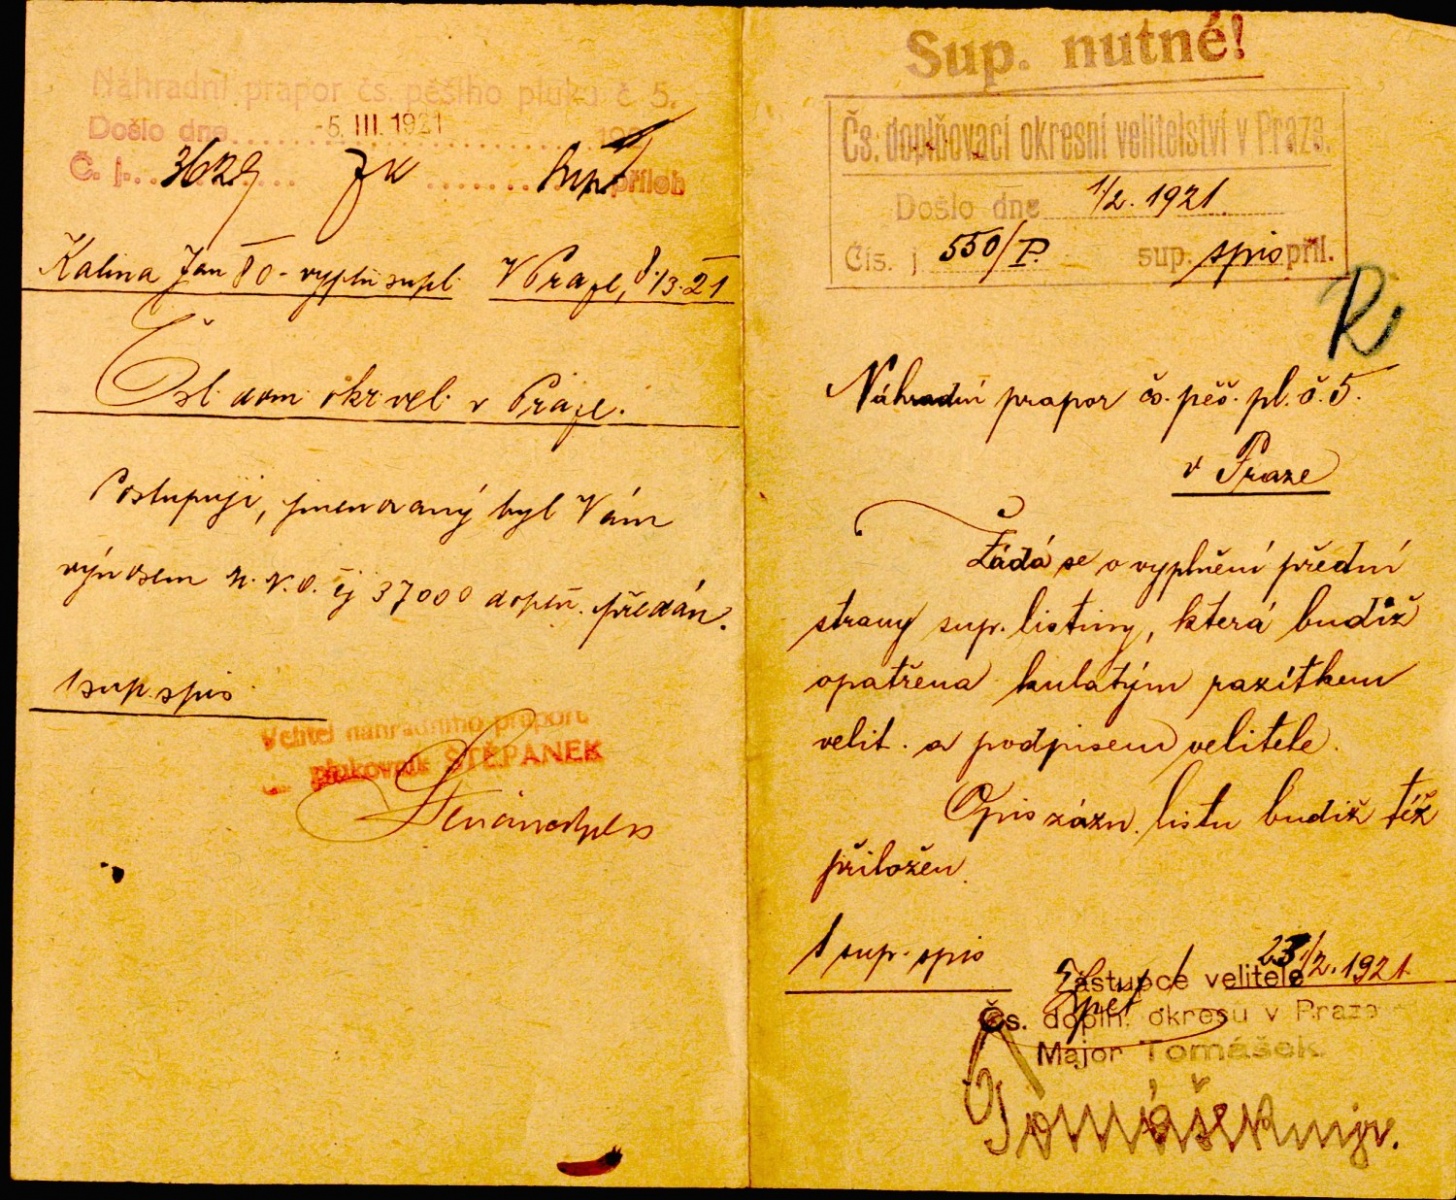 Náhradní prapor čs. pěšího pluku č 5.
Došlo dne -5. III. 1921 19
Č. j. 3629 příloh
Kalina Jan vyplň supl. V Praze, 8./3. 21
Čsl. dopl. okr. vel. v Praze.
Postupuji, jmenovaný byl Vám
výnosem M.N.O. čj 37000 doplň. předán.
1 sup. spis
Velitel náhradního praporu
plukovník ŠTĚPÁNEK
Sup. nutné!
Čs. doplňovací okresní velitelství v Praze.
Došlo dne 1/2. 1921
Čís. j. 550/P. sup. spis příl.
R
Náhradní prapor čs. pěš. pl. č. 5.
v Praze
Žádá se o vyplnění přední
strany sup. listiny, která budiž
opatřena kulatým razítkem
velit. a podpisem velitele.
Opis zázn. listu budiž též
přiložen.
1 sup. spis
Zpět 23./2. 1921
Zástupce velitele
Čs. dopln. okresu v Praze
Major Tomášek
Tomášek mjr.